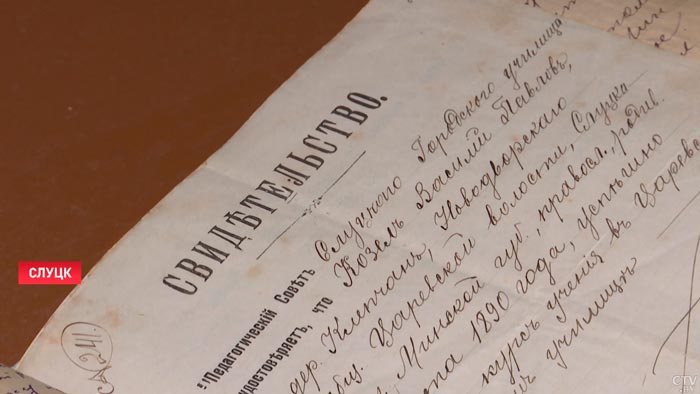 СВИДѢТЕЛЬСТВО.
Педагогическій Совѣтъ Слуцкаго Городского училища
удостовѣряетъ, что Козелъ Василій Павловъ,
дер. Клепчанъ, Новодворскаго
Царевской волости, Слуцка
Минской губ., правосл., родив.
1890 года, успѣшно
курсъ ученія въ Царевс
училищѣ
СЛУЦК
CTV